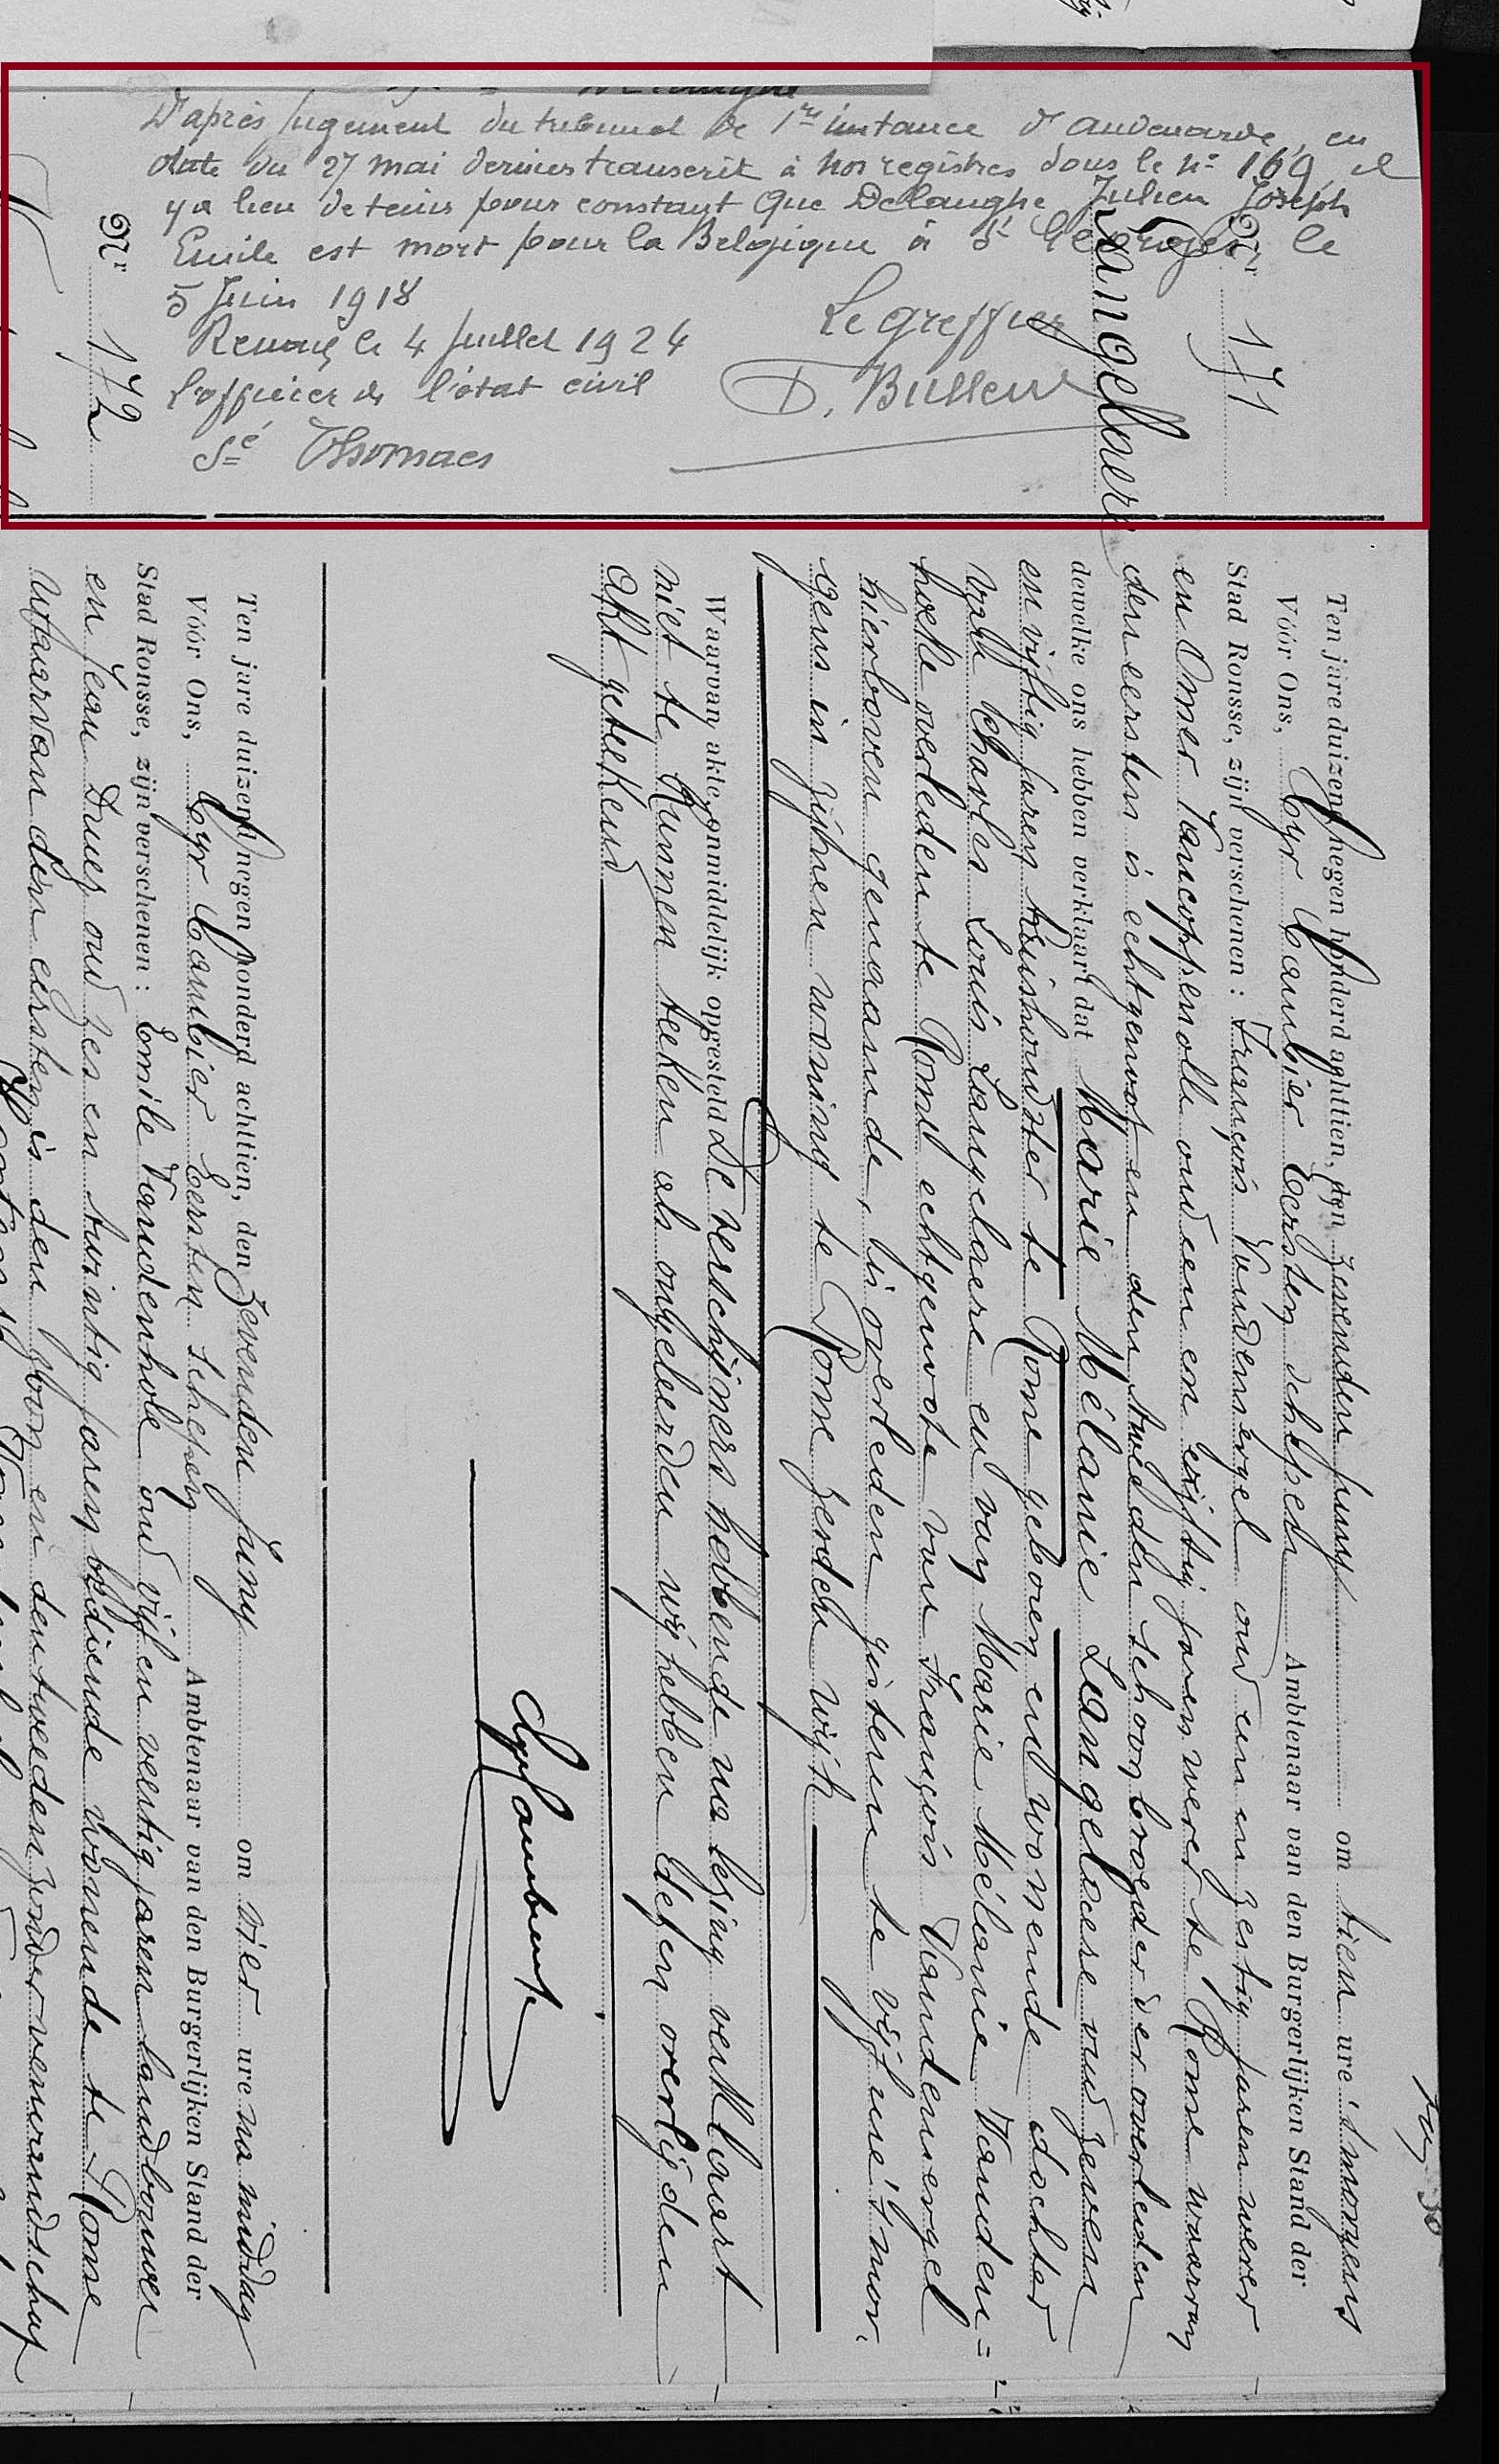 D'après jugement du tribunal de 1re instance d'audenarde, en
date du 27 mai dernier transcrit à nos registres sous le n° 169, il
y a lieu de tenir pour constant que Delanghe Julien Joseph
Emile est mort pour la Belgique à St Georges, le
5 Juin 1918
Renaix le 4 Juillet 1924
Le greffier
L'officier de l'état civil
D. Bulleux
Sé Thomaes
Nr 171
Langelaere
Ten jare duizend negen honderd achttien, den zevenden juny om tien ure 's morgens
Vóór Ons, Cyr Cambier Eersten schepen Ambtenaar van den Burgerlijken Stand der
Stad Ronsse, zijn verschenen: François Vandenergel oud een en zestig jaren wever
en Omer Vancoppenolle oud een en vijftig jaren wever te Ronse waarvan
den eersten is echtgenoot en den tweeden schoonbroeder der overleden
dewelke ons hebben verklaart dat Marie Mélanie Langelaere oud zeven
en vijftig jaren huishoudster te Ronse geboren en wonende dochter
van Charles Louis Langelaere en van Marie Mélanie Vanden=
hoele overleden te Ronse echtgenote van François Vandenergel
hierboven genaamde, is overleden gisteren te vijf ure 's mor.
gens in zijnen woning te Ronse zenden wijk
Waarvan akte onmiddelijk opgesteld De verschijners hebbende na lezing verklaart
niet te kunnen teeken als ongeleerden wij hebben dezen overlijden
akt geteekend
Cyr Cambier
Nr 172
Ten jare duizend negen honderd achttien, den zevenden juny om vier ure na middag
Vóór Ons, Cyr Cambier Eersten schepen Ambtenaar van den Burgerlijken Stand der
Stad Ronsse, zijn verschenen: Emile Vandenhole oud vijf en veertig jaren landbouwer
en Jean Druez oud zes en twintig jaren bediende wonende te Ronse
waarvan den eersten is den zoon en den tweeden zonder verwandschap